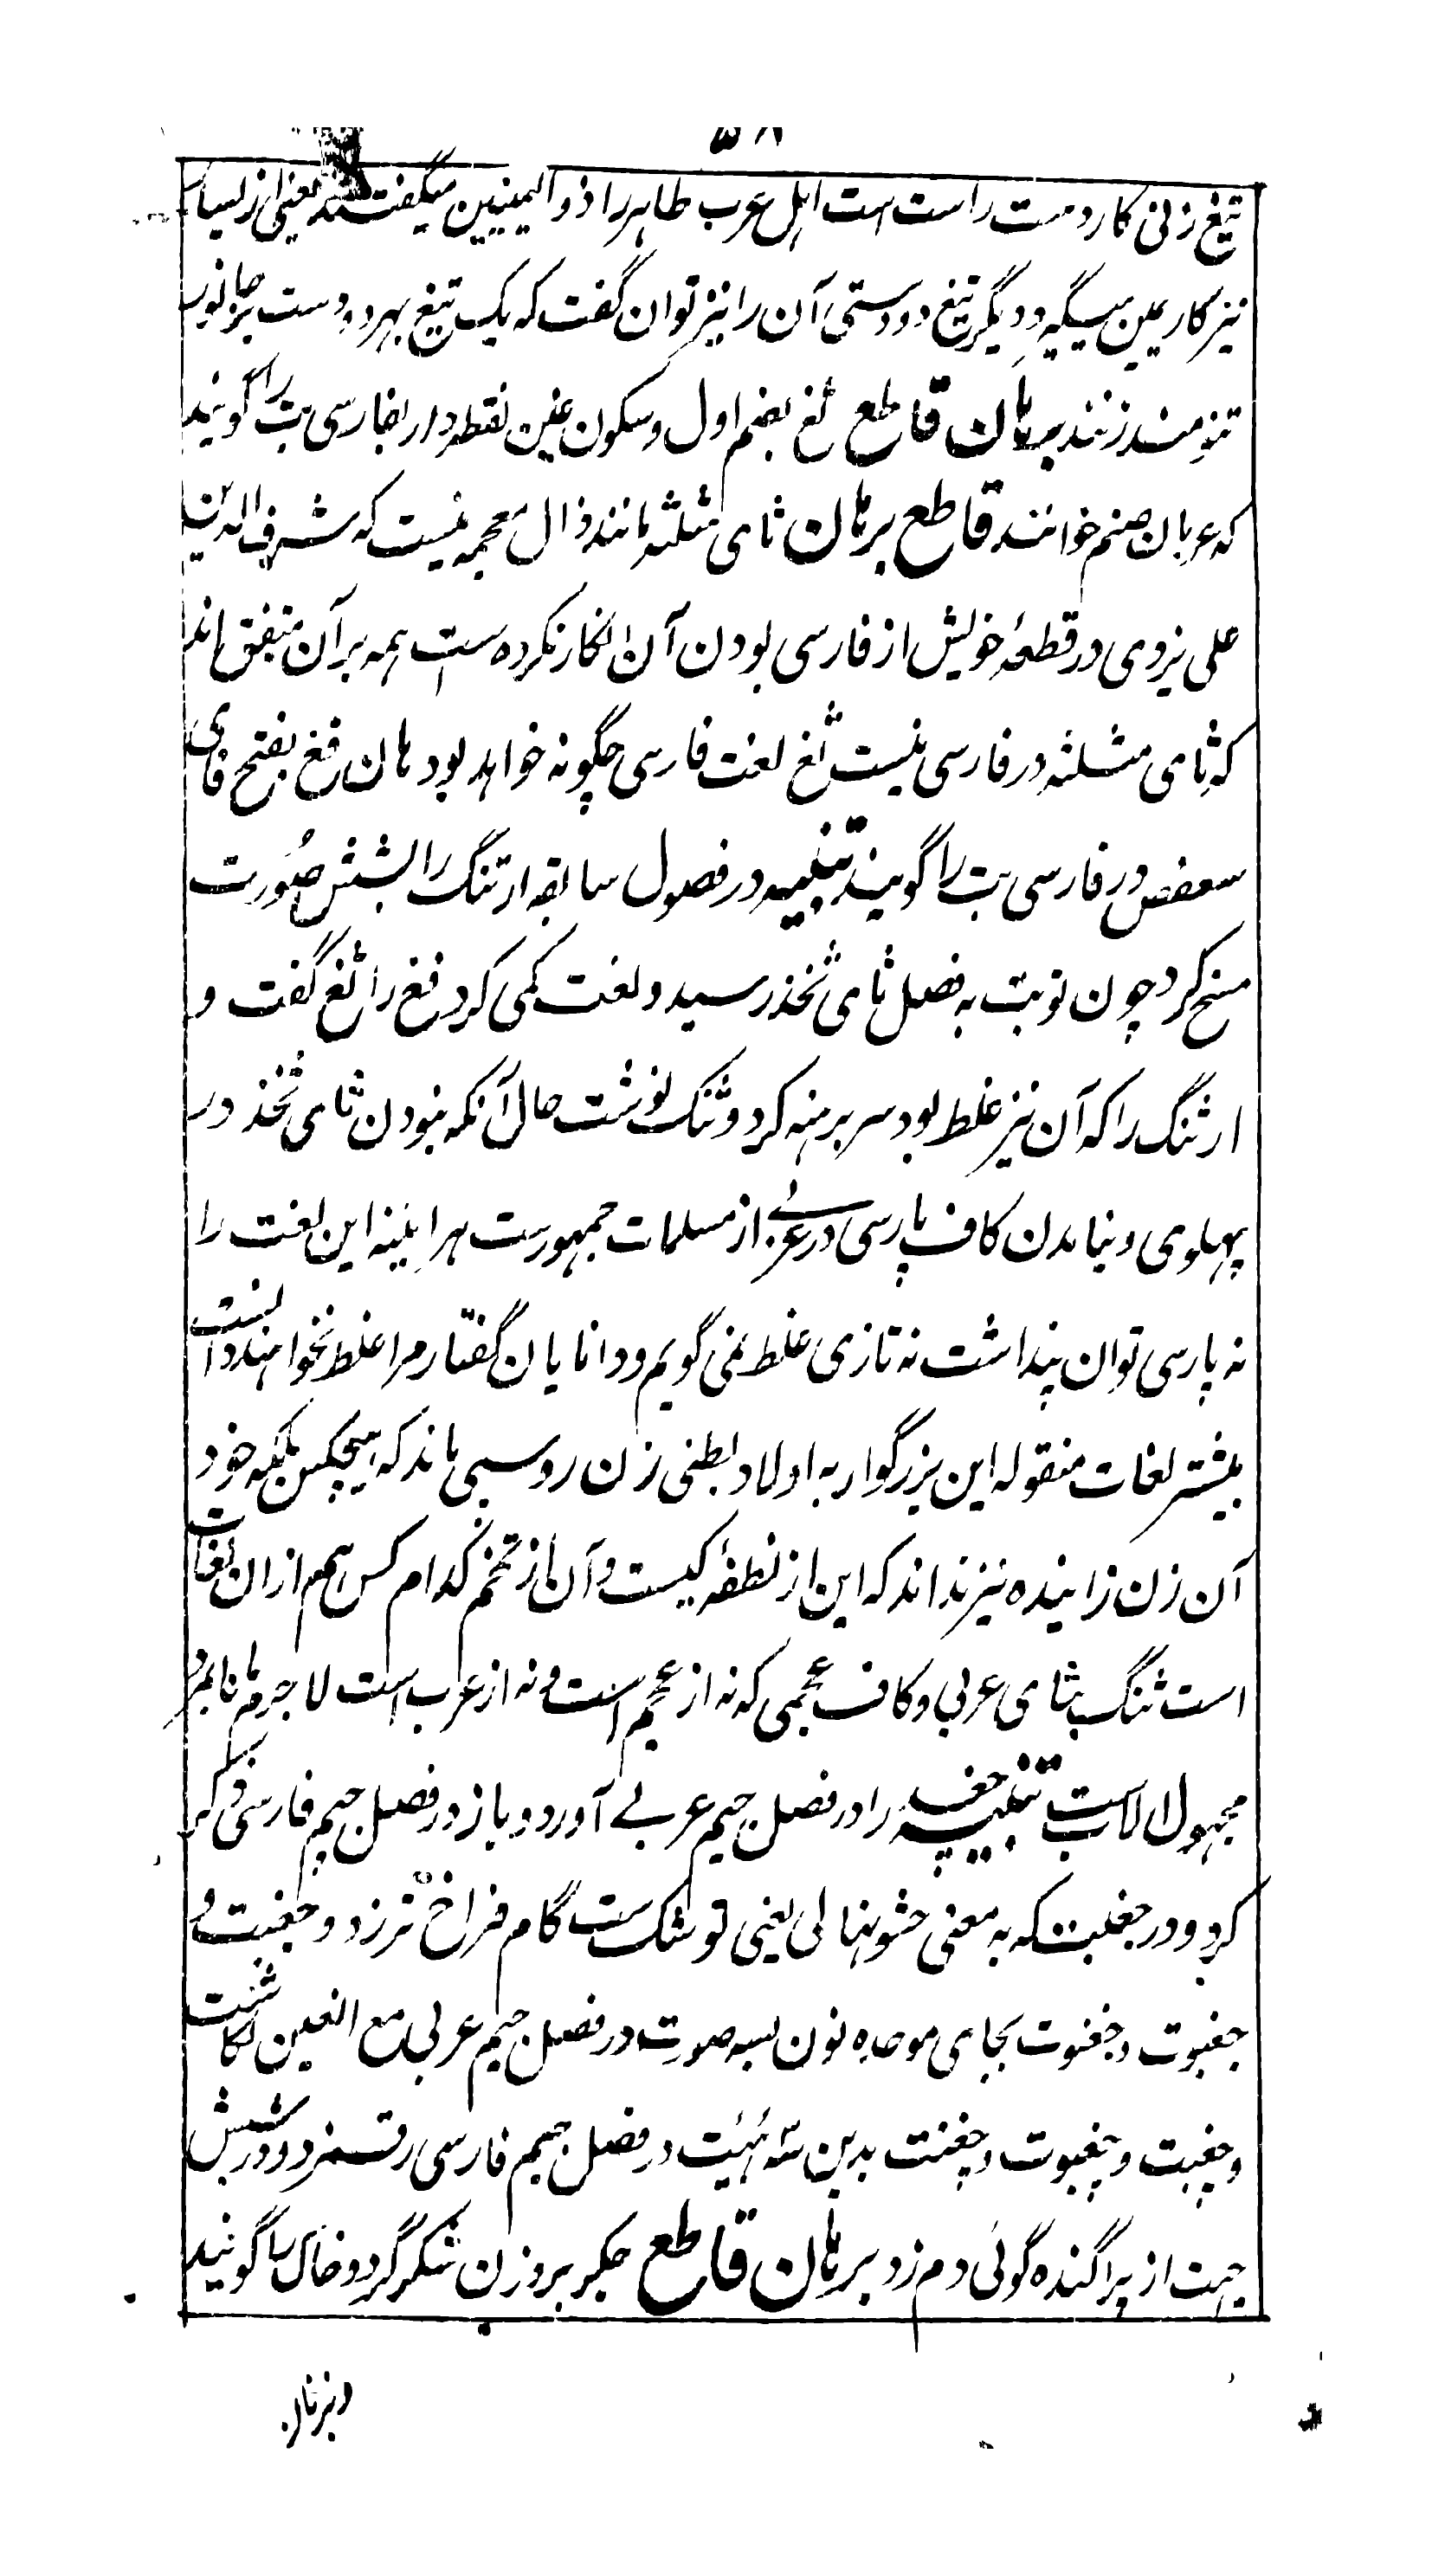 ۵۸
تیغ زنی کار دست راست است اہل عرب طاہر را ذو الیمینین میگفتند یعنی از یسار
نیز کار یمین میگیرد دیگر تیغ دودستی آن را نیز توان گفت کہ یک تیغ بہر دو دست بر جانور
تنومند زنند برہان قاطع ثغ بضم اول و سکون غین نقطہ دار بفارسی بت را گویند
کہ عربان صنم خوانند قاطع برہان ثای مثلثہ مانند ذال معجمہ نیست کہ شرف الدین
علی یزدی در قطعۂ خویش از فارسی بودن آن انکار نکردہ است ہمہ بر آن متفق اند
کہ ثای مثلثہ در فارسی نیست ثغ لغت فارسی چگونہ خواہد بود ہان فغ بفتح فای
سعفص در فارسی بت را گویند تنبیہ در فصول سابقہ ارتنگ را بشش صورت
مسخ کرد چون نوبت بہ فصل ثای ثخذ رسید و لغت کمی کرد فغ را ثغ گفت و
ارثنگ را کہ آن نیز غلط بود سر برہنہ کرد و ثنگ نوشت حال آنکہ نبودن ثای ثخذ در
پہلوی و نیامدن کاف پارسی در عربی از مسلمات جمہورست ہرآینہ این لغت را
نہ پارسی توان پنداشت نہ تازی غلط نمی گویم و دانایان گفتار مرا غلط نخواہند دانست
بیشتر لغات منقولہ این بزرگوار بہ اولاد بطنی زن روسپی ماند کہ ہیچکس بلکہ خود
آن زن زایندہ نیز نداند کہ این از نطفۂ کیست و آن از تخم کدام کس ہم از ان لغات
است ثنگ بثای عربی و کاف عجمی کہ نہ از عجم است و نہ از عرب است لاجرم مانا بمرد
مجہول الاب است تنبیہ جغبہ را در فصل جیم عربی آورد و باز در فصل جیم فارسی ذکر
کرد و در جغبت کہ بہ معنی حشو نہالی یعنی توشک ست گام فراخ تر زد و جغبت و
جغبوت و جغنوت بجای موحدہ نون بسہ صورت در فصل جیم عربی مع الغین نگاشت
و چغبت و چغبوت و چغنت بدین سہ ہیئت در فصل جیم فارسی رقم زد و در شش
جہت از پراگندہ گوئی دم زد برہان قاطع جکر بر وزن شکر گرد و خاک را گویند